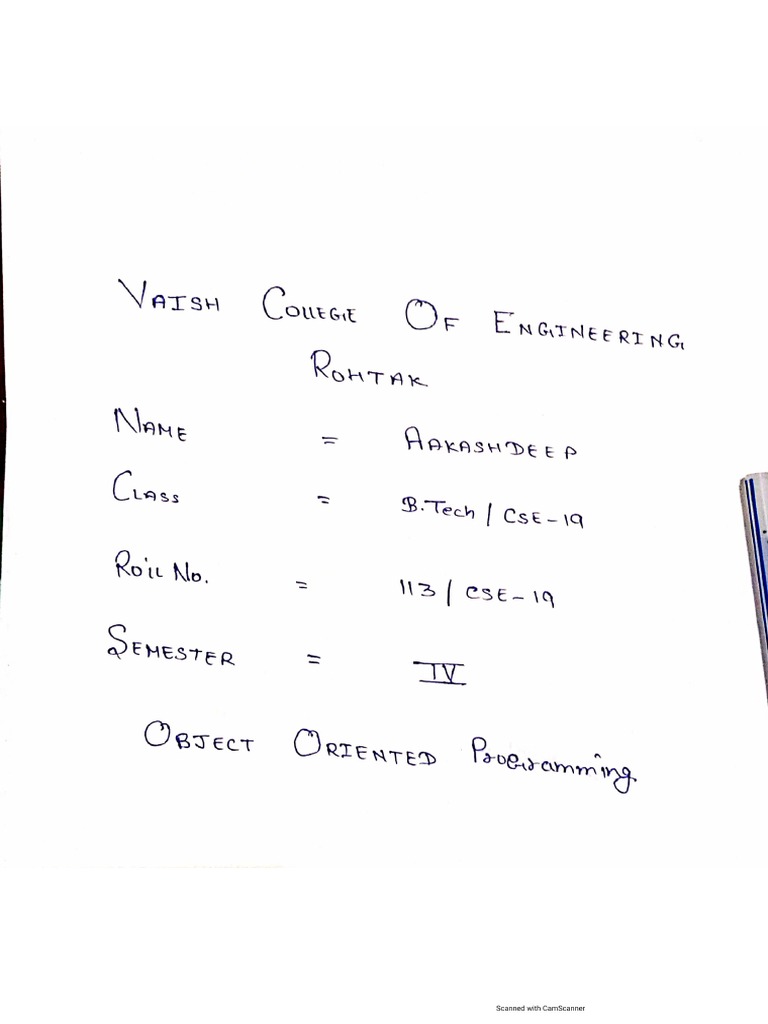 VAISH COLLEGE OF ENGINEERING
ROHTAK
NAME = AAKASHDEEP
CLASS = B.Tech / CSE-19
Roll No. = 113 / CSE-19
SEMESTER = IV
OBJECT ORIENTED Programming
Scanned with CamScanner